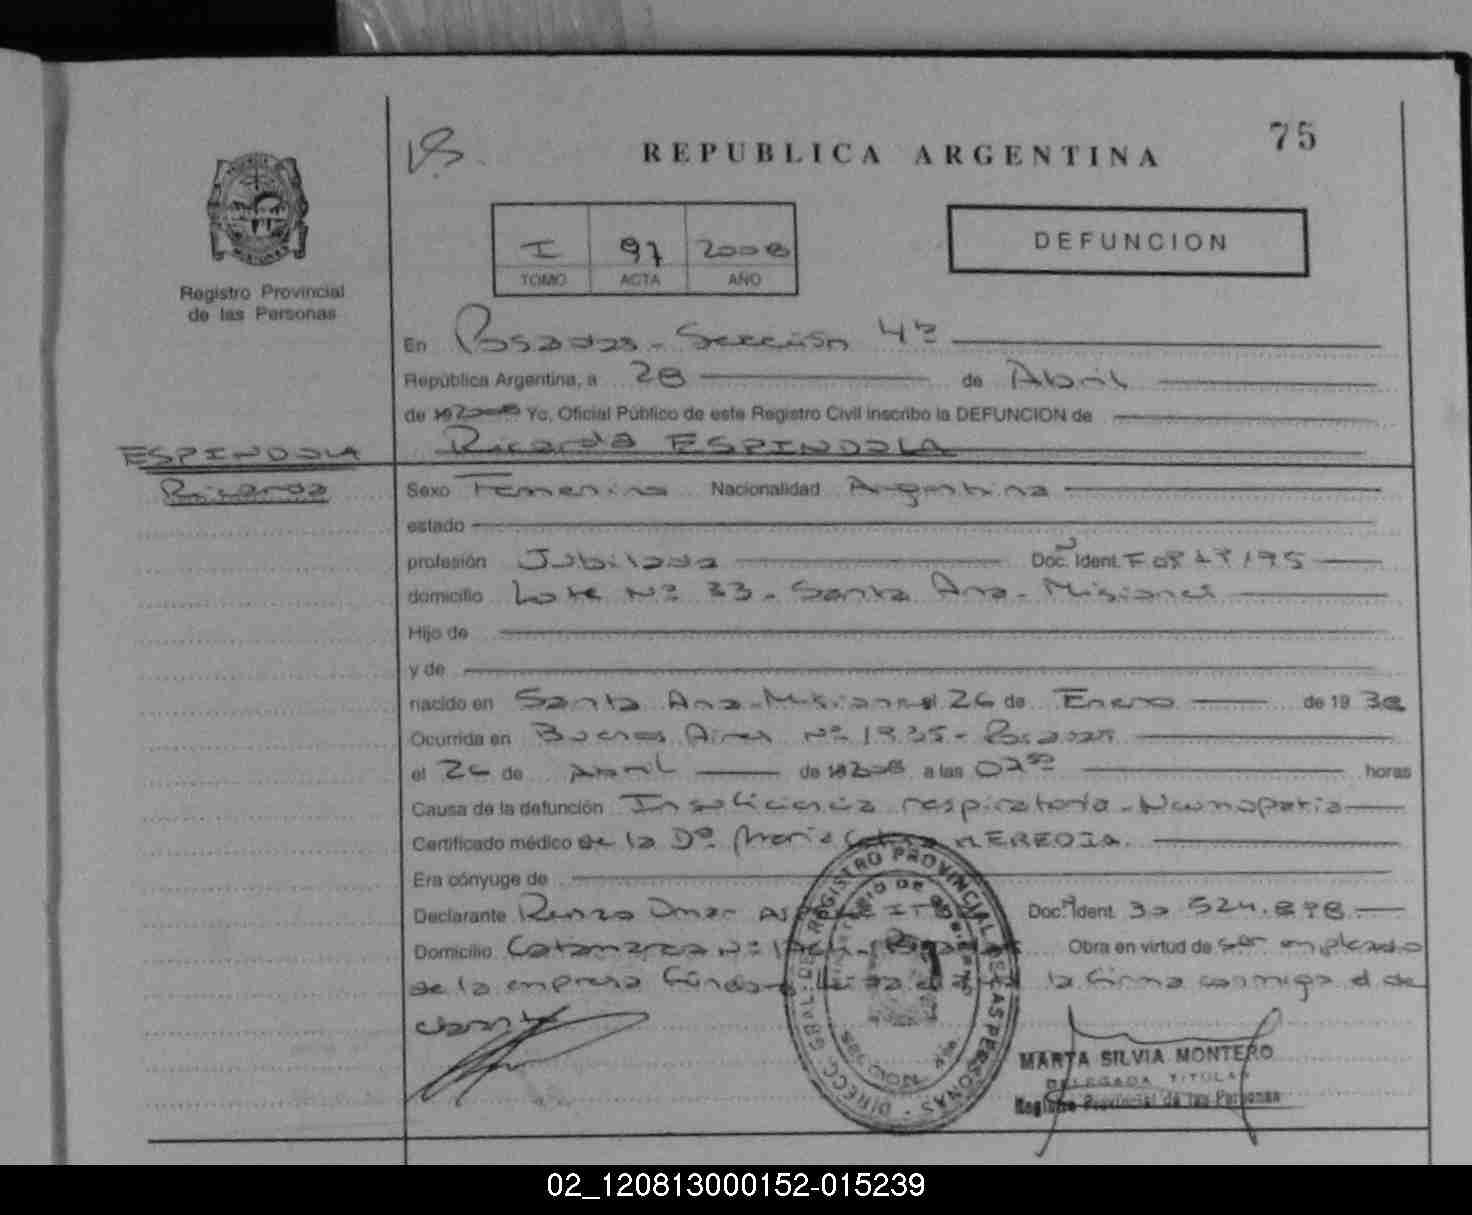 75
REPUBLICA ARGENTINA
I 97 2008
TOMO ACTA AÑO
DEFUNCION
Registro Provincial
de las Personas
En Posadas - Sección 4ª
República Argentina, a 28 de Abril
de 19 2008 Yo, Oficial Público de este Registro Civil inscribo la DEFUNCION de
Ricarda ESPINDOLA
ESPINDOLA
Ricarda
Sexo Femenino Nacionalidad Argentina
estado
profesión Jubilada Doc. Ident.
domicilio Lote Nº 33 - Santa Ana - Misiones
Hijo de
y de
nacido en Santa Ana - Misiones el 26 de Enero de 19 38
Ocurrida en Buenos Aires Nº 1935 - Posadas
el 26 de Abril de 19 2008 a las horas
Causa de la defunción Insuficiencia respiratoria - Neumopatia
Certificado médico de la Dª Maria HEREDIA
Era cónyuge de
Declarante Renzo Omar Doc. Ident. 30.524.898
Domicilio Catamarca Nº Obra en virtud de ser empleado
de la empresa la firma conmigo el de
clarante
DIRECC. GRAL. DEL REGISTRO PROVINCIAL DE LAS PERSONAS
MINISTERIO DE GOBIERNO
MISIONES
MARTA SILVIA MONTERO
DELEGADA TITULAR
Registro Provincial de las Personas
02_120813000152-015239